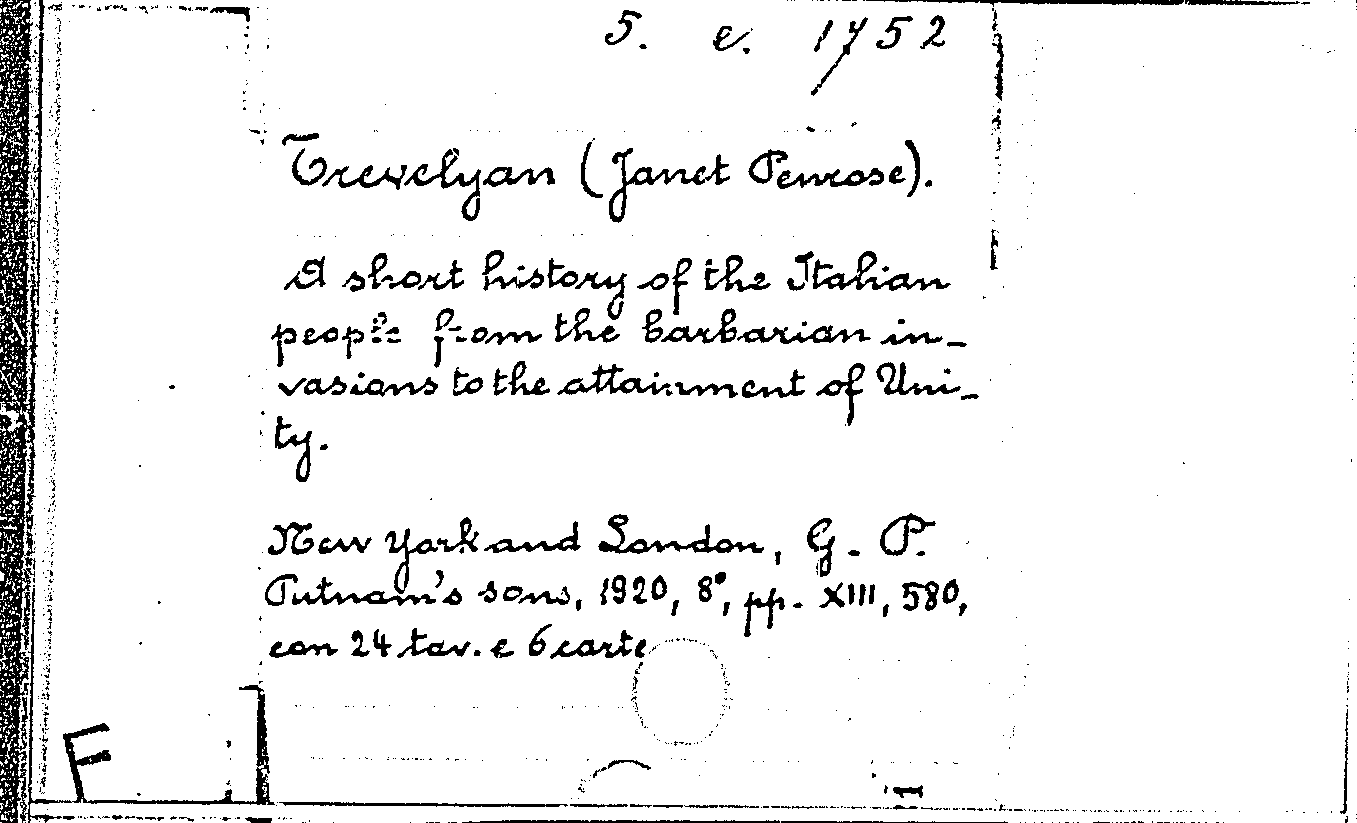 5. e. 1752
Trevelyan (Janet Penrose).
A short history of the Italian
people from the barbarian in-
vasions to the attainment of Uni-
ty.
New York and London, G. P.
Putnam's sons, 1920, 8°, pp. XIII, 580,
con 24 tav. e 6 carte
F